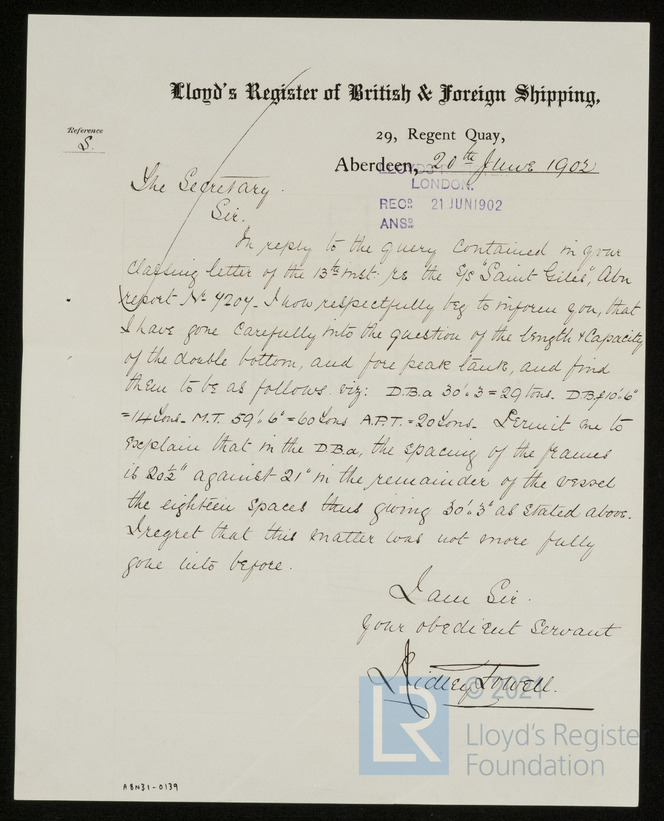 Lloyd's Register of British & Foreign Shipping,
29, Regent Quay,
Reference
S.
Aberdeen, 20th June 1902
LONDON.
RECD 21 JUN 1902
ANSD
The Secretary.
Sir.
In reply to the query contained in your
classing letter of the 13th inst. re the S/S "Saint Giles", Abn
report No 4204. I now respectfully beg to inform you, that
I have gone carefully into the question of the length & capacity
of the double bottom, and fore peak tank, and find
them to be as follows viz: D.B.a 30'.3 = 29 tons. D.B.f 10'.6"
= 14 tons. M.T. 59'.6" = 60 tons A.P.T. = 20 tons. Permit me to
explain that in the D.B.a, the spacing of the frames
is 20½" against 21" in the remainder of the vessel
the eighteen spaces thus giving 30'.3" as stated above.
I regret that this matter was not more fully
gone into before.
I am Sir.
Your obedient Servant
Ridley Towell.
© 2021
LR
Lloyd's Register
Foundation
ABN31-0139